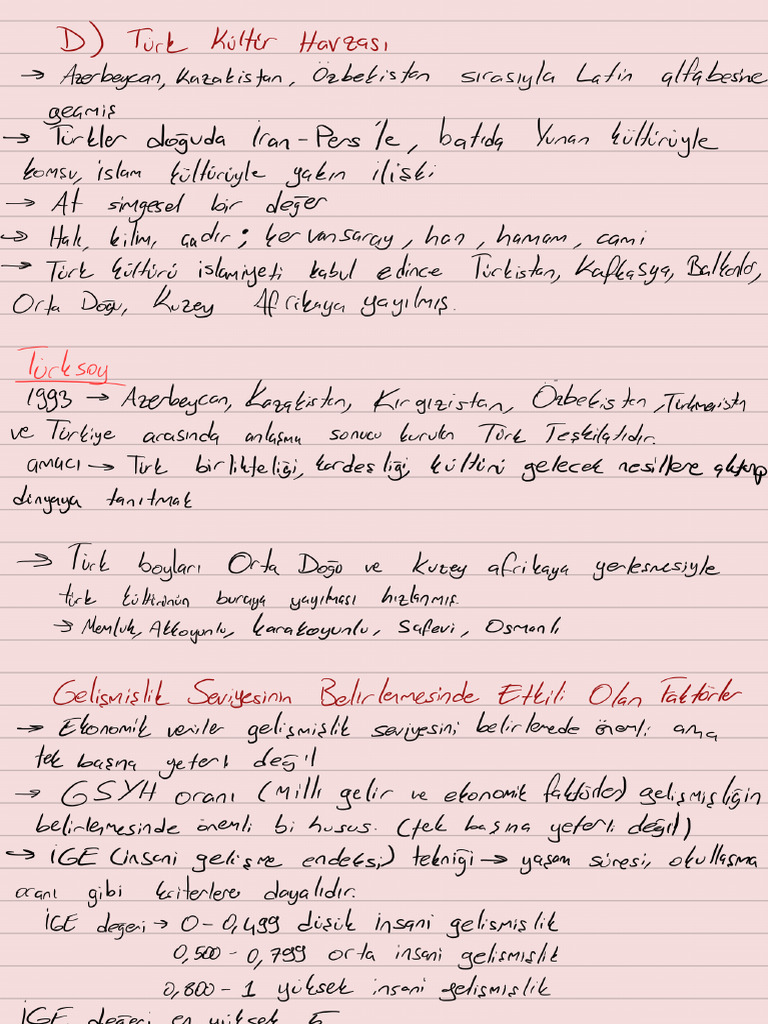 D) Türk Kültür Havzası
→ Azerbeycan, Kazakistan, Özbekistan sırasıyla Latin alfabesine
geçmiş
→ Türkler doğuda İran-Pers'le, batıda Yunan kültürüyle
komşu, islam kültürüyle yakın ilişki
→ At simgesel bir değer
→ Halı, kilim, çadır; kervansaray, han, hamam, cami
→ Türk kültürü islamiyeti kabul edince Türkistan, Kafkasya, Balkanlar,
Orta Doğu, Kuzey Afrikaya yayılmış.
Türksoy
1993 → Azerbeycan, Kazakistan, Kırgızistan, Özbekistan, Türkmenistan
ve Türkiye arasında anlaşma sonucu kurulan Türk Teşkilatıdır.
amacı → Türk birlikteliği, kardeşliği, kültürü gelecek nesillere aktarıp
dünyaya tanıtmak
→ Türk boyları Orta Doğo ve Kuzey afrikaya yerleşmesiyle
türk kültürünün buraya yayılması hızlanmış.
→ Memluk, Akkoyunlu, karakoyunlu, Safevi, Osmanlı
Gelişmişlik Seviyesinin Belirlenmesinde Etkili Olan Faktörler
→ Ekonomik veriler gelişmişlik seviyesini belirlemede önemli ama
tek başına yeterli değil
→ GSYH oranı (milli gelir ve ekonomik faktörler) gelişmişliğin
belirlenmesinde önemli bi husus. (tek başına yeterli değil)
→ İGE (insani gelişme endeksi) tekniği → yaşam süresi, okullaşma
oranı gibi kriterlere dayalıdır.
İGE değeri → 0-0,499 düşük insani gelişmişlik
0,500-0,799 orta insani gelişmişlik
0,800-1 yüksek insani gelişmişlik
İGE değeri en yüksek 5